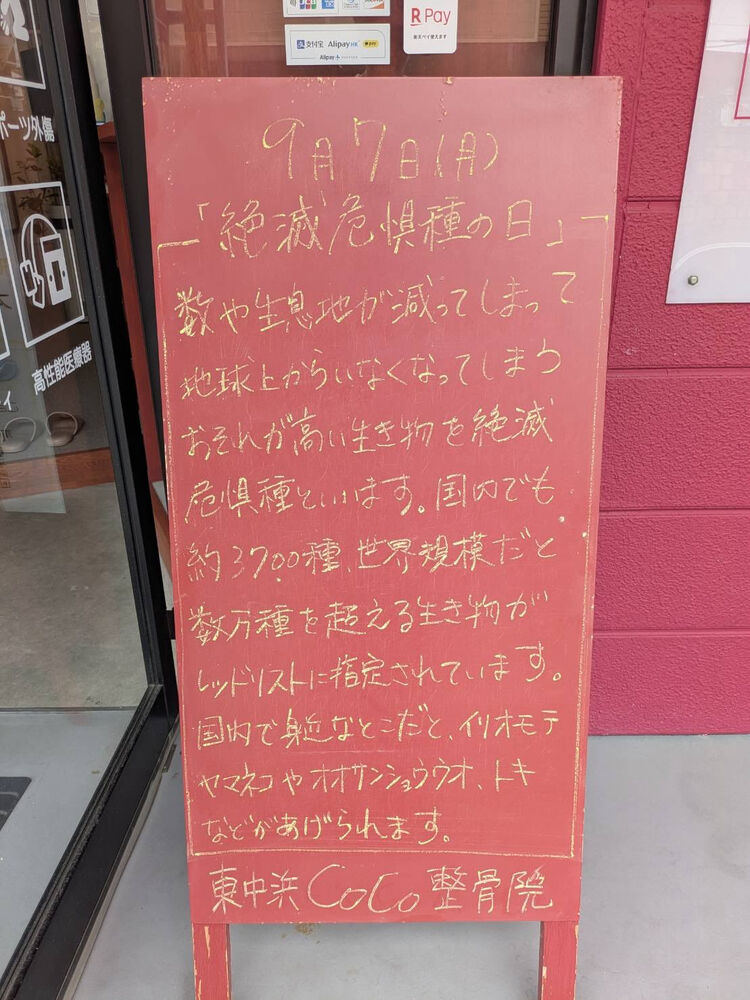 R Pay
楽天ペイ使えます
支付宝 Alipay HK
pay
Alipay+
ポーツ外傷
高性能医療器
9月7日(月)
「絶滅危惧種の日」
数や生息地が減ってしまって
地球上からいなくなってしまう
おそれが高い生き物を絶滅
危惧種といいます。国内でも
約3700種、世界規模だと
数万種を超える生き物が
レッドリストに指定されています。
国内で身近なとこだと、イリオモテ
ヤマネコやオオサンショウウオ、トキ
などがあげられます。
東中浜CoCo整骨院